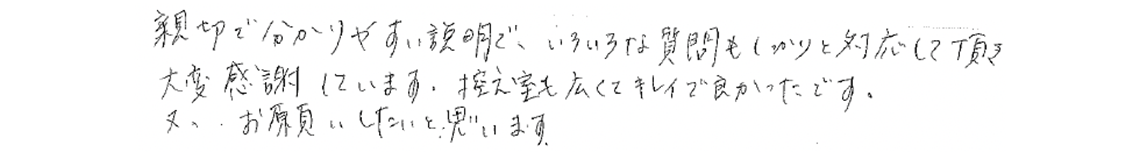 親切で分かりやすい説明で、いろいろな質問もしっかりと対応して頂き
大変感謝しています。控え室も広くてキレイで良かったです。
又、お願いしたいと思います